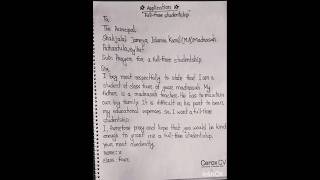 * Application *
"Full-free studentship"
To,
The Principal
Shahjalal Jameya Islamia Kamil (M.A) Madrasah
Pathantula, Sylhet
Sub: Prayer for a full-free studentship.
Sir,
I beg most respectfully to state that I am a
student of class four of your madrasah. My
father is a madrasah teacher. He has to maintain
our big family. It is difficult on his part to bear
my educational expenses. So, I want a full-free
studentship.
I therefore pray and hope that you would be kind
enough to grant me a full-free studentship.
your most obediently,
name: x
class four.